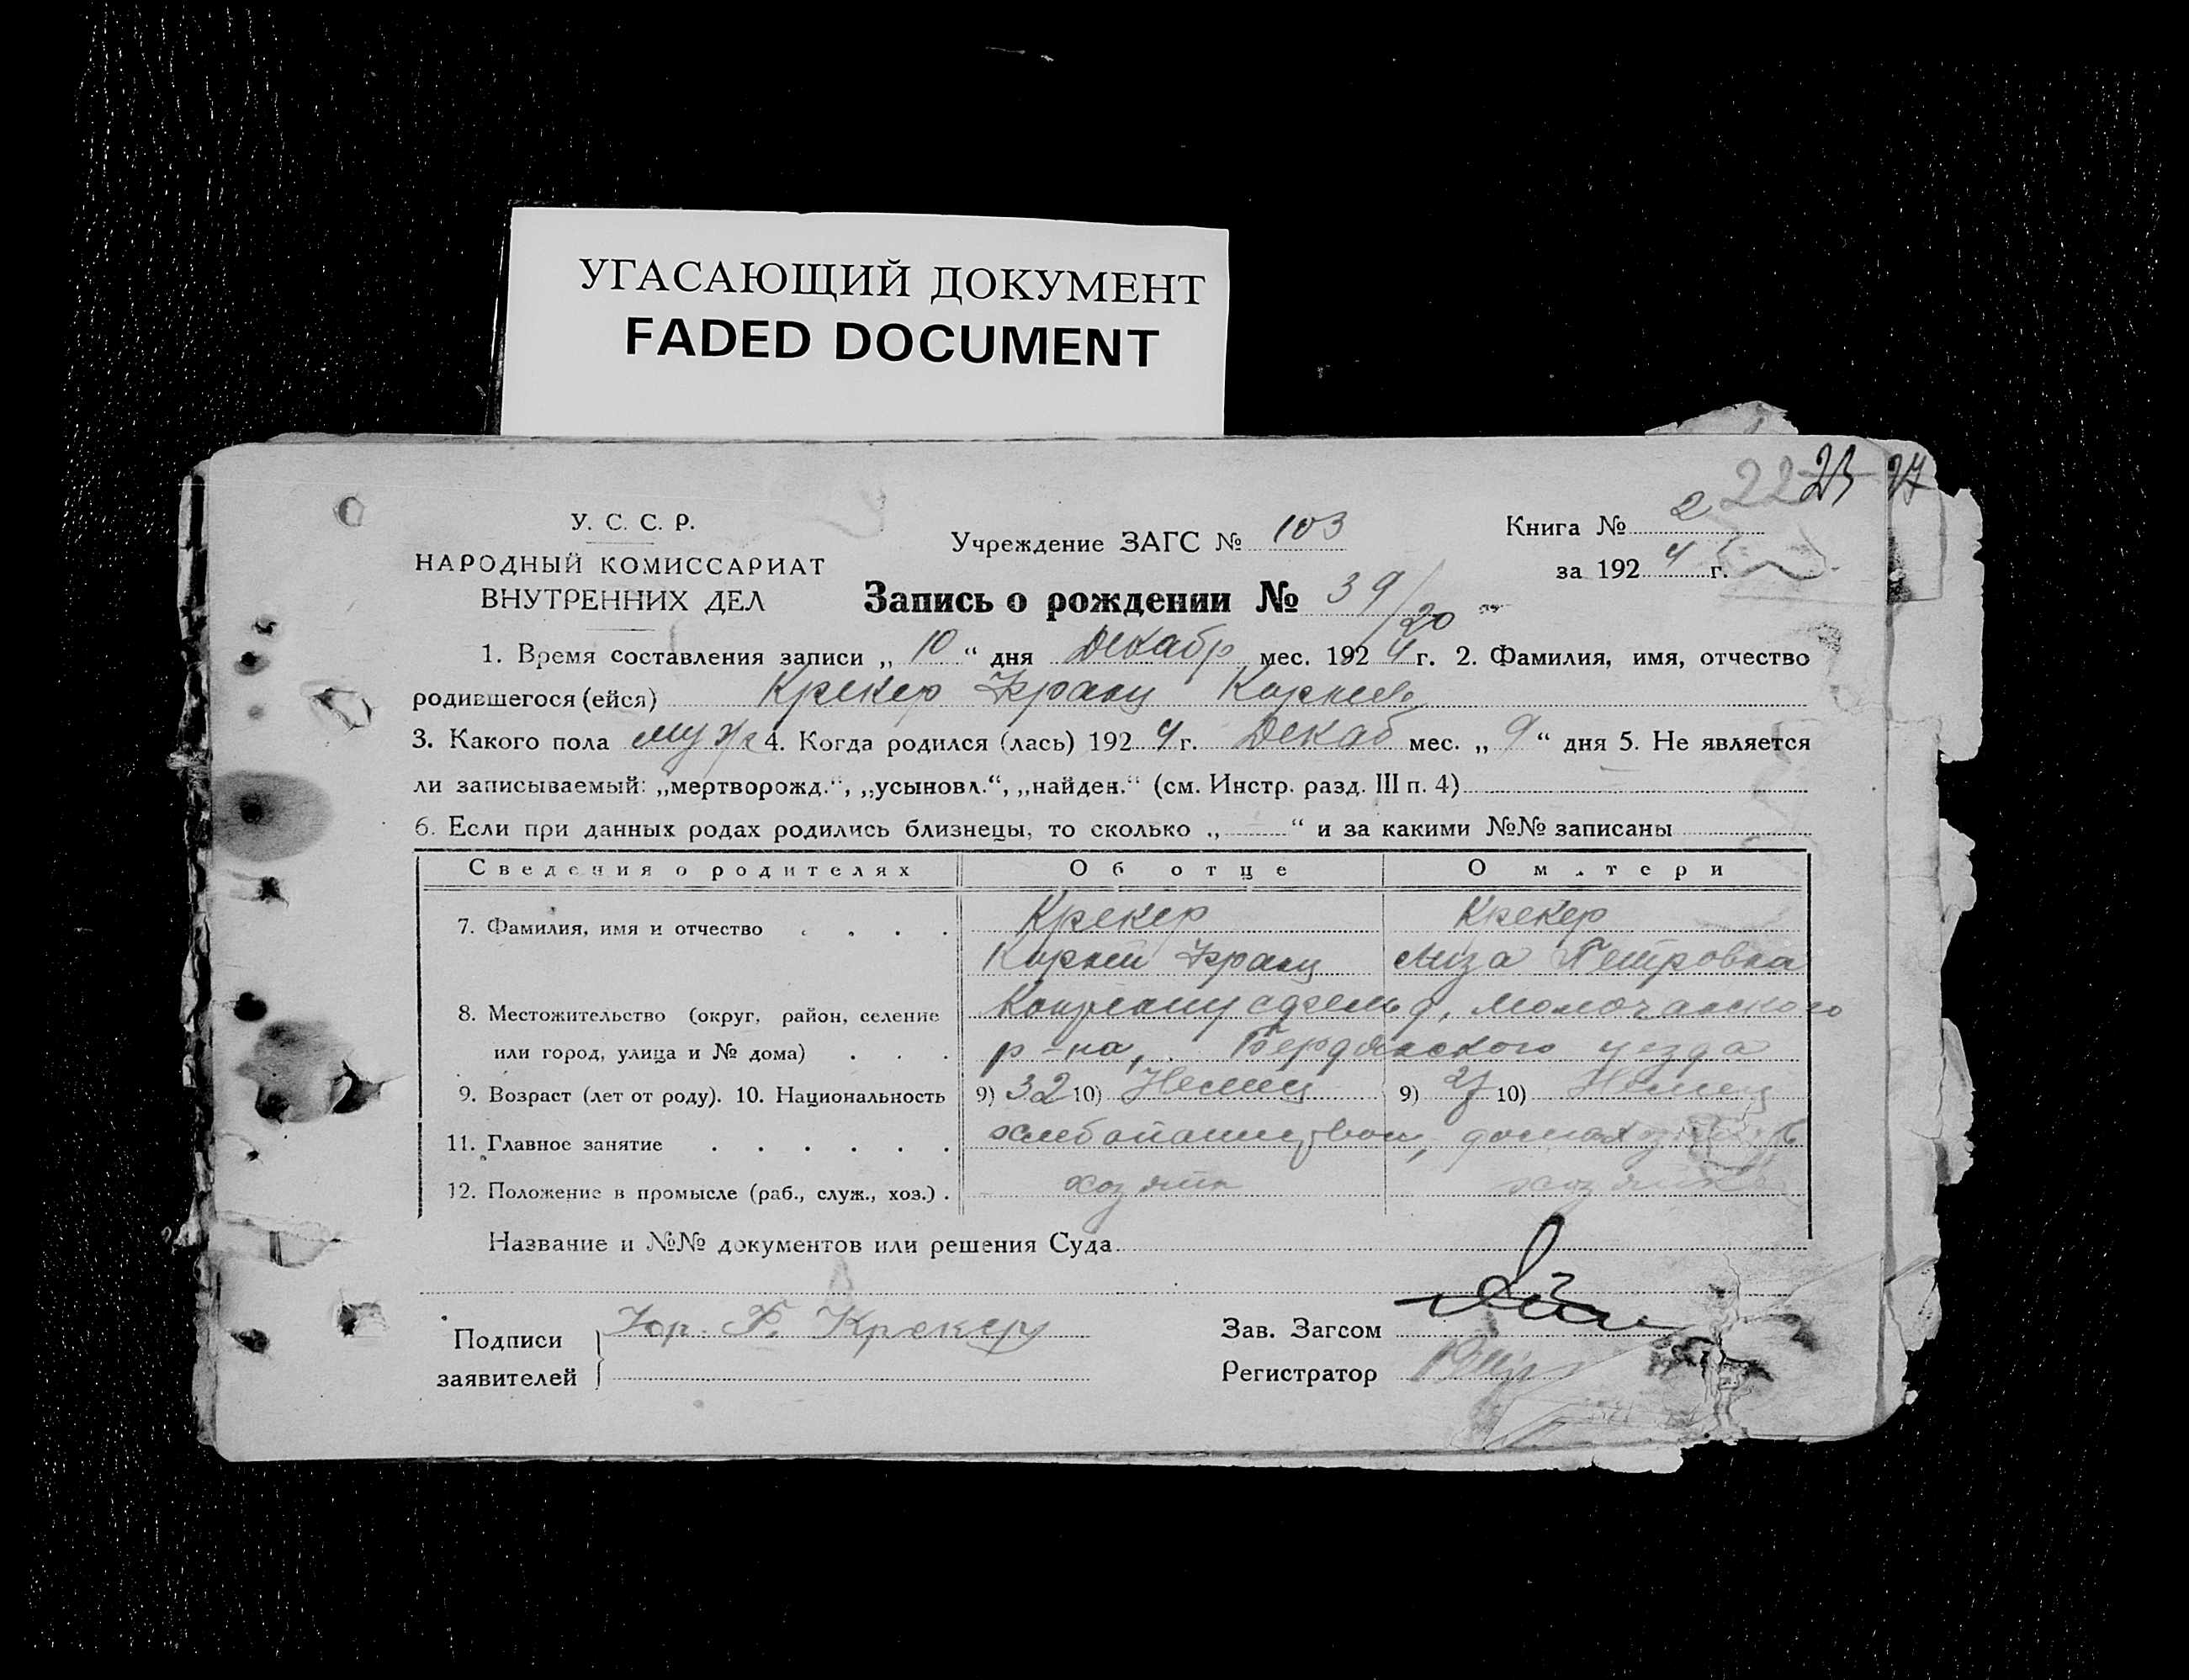 УГАСАЮЩИЙ ДОКУМЕНТ
FADED DOCUMENT
22 23 27
У. С. С. Р.
НАРОДНЫЙ КОМИССАРИАТ
ВНУТРЕННИХ ДЕЛ
Учреждение ЗАГС № 103
Книга № 2
за 1924 г.
Запись о рождении № 39/20
1. Время составления записи „ 10 “ дня Декабр мес. 1924 г. 2. Фамилия, имя, отчество
родившегося (ейся) Крекер Франц Корнеев
3. Какого пола муж 4. Когда родился (лась) 1924 г. Декаб мес. „ 9 “ дня 5. Не является
ли записываемый: „мертворожд.“, „усыновл.“, „найден.“ (см. Инстр. разд. III п. 4)
6. Если при данных родах родились близнецы, то сколько „ “ и за какими №№ записаны
Сведения о родителях Об отце О матери
7. Фамилия, имя и отчество Крекер Крекер
Корней Франц Лиза Петровна
8. Местожительство (округ, район, селение молочанского
или город, улица и № дома) р-на, Бердянского уезда
9. Возраст (лет от роду). 10. Национальность 9) 32 10) Немец 9) 27 10) Немец
11. Главное занятие
12. Положение в промысле (раб., служ., хоз.) хозяин хозяйка
Название и №№ документов или решения Суда
Подписи Кор. Ф. Крекер
заявителей
Зав. Загсом
Регистратор